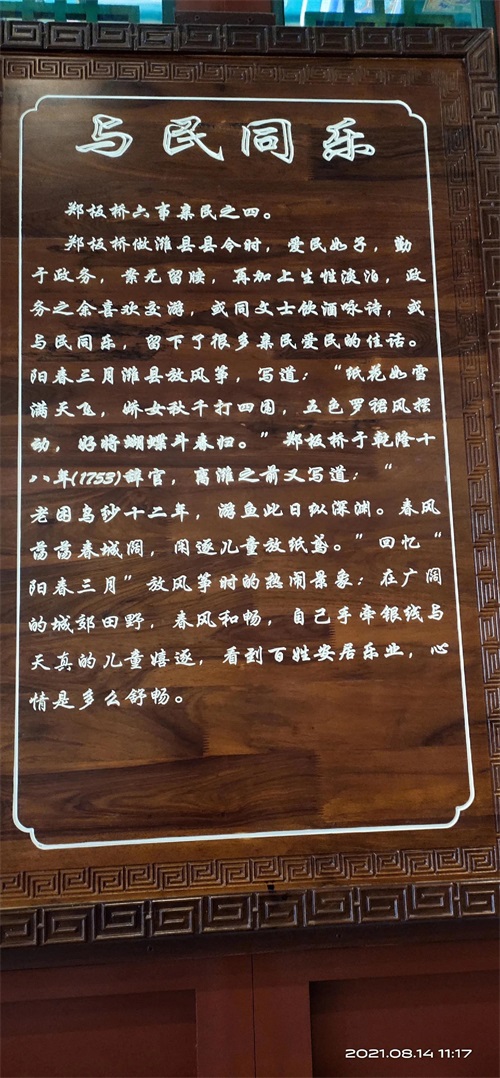 与民同乐
郑板桥六事亲民之四。
郑板桥做潍县县令时，爱民如子，勤
于政务，案无留牍，再加上生性淡泊，政
务之余喜欢交游，或同文士饮酒咏诗，或
与民同乐，留下了很多亲民爱民的佳话。
阳春三月潍县放风筝，写道：“纸花如雪
满天飞，娇女秋千打四围，五色罗裙风摆
动，好将蝴蝶斗春归。”郑板桥于乾隆十
八年(1753)辞官，离潍之前又写道：“
老困乌纱十二年，游鱼此日纵深渊。春风
荡荡春城阔，闲逐儿童放纸鸢。”回忆“
阳春三月”放风筝时的热闹景象：在广阔
的城郭田野，春风和畅，自己手牵银线与
天真的儿童嬉逐，看到百姓安居乐业，心
情是多么舒畅。
2021.08.14 11:17